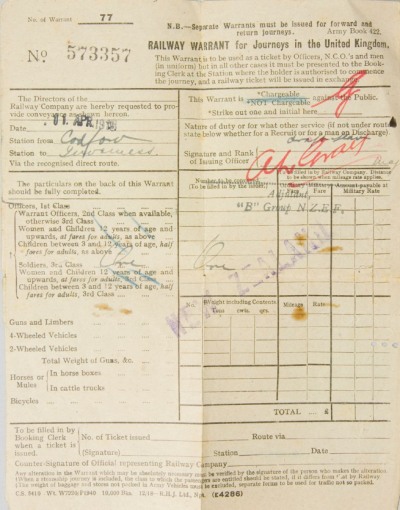 No. of Warrant 77
N.B.—Separate Warrants must be issued for forward and return journeys. Army Book 422.
No 573357
RAILWAY WARRANT for Journeys in the United Kingdom.
This Warrant is to be used as a ticket by Officers, N.C.O.'s and men
(in uniform) but in all other cases it must be presented to the Book-
ing Clerk at the Station where the holder is authorised to commence
the journey, and a railway ticket will be issued in exchange.
The Directors of the
Railway Company are hereby requested to pro-
vide conveyance as shown hereon.
Date 01 APR 19
Station from
Station to
Via the recognised direct route.
This Warrant is *Chargeable against the Public.
*NOT Chargeable
*Strike out one and initial here
Nature of duty or for what other service (if not under route
state below whether for a Recruit or for a man on Discharge).
Signature and Rank
of Issuing Officer
The particulars on the back of this Warrant
should be fully completed.
Number to be conveyed
(To be filled in by the issuer).
To be filled in by Railway Company. Distance
to be shown when mileage rate applies.
Ordinary Fare
Military
Amount payable at
Military Rate
Adjutant,
"B" Group N.Z.E.F.
Officers, 1st Class
Warrant Officers, 2nd Class when available,
otherwise 3rd Class
Women and Children 12 years of age and
upwards, at fares for adults, as above
Children between 3 and 12 years of age, half
fares for adults, as above
Soldiers, 3rd Class One One
Women and Children 12 years of age and
upwards, at fares for adults, 3rd Class
Children between 3 and 12 years of age, half
fares for adults, 3rd Class
NEW ZEALAND
No. Weight including Contents Mileage Rate
Tons cwts. qrs.
Guns and Limbers
4-Wheeled Vehicles
2-Wheeled Vehicles
Total Weight of Guns, &c.
Horses or Mules
In horse boxes
In cattle trucks
Bicycles
TOTAL ... £
To be filled in by
Booking Clerk
when a ticket is
issued.
No. of Ticket issued Route via
(Signature) Station Date
Counter-Signature of Official representing Railway Company
Any alteration in the Warrant which may be absolutely necessary must be verified by the signature of the person who makes the alteration
(£4286)